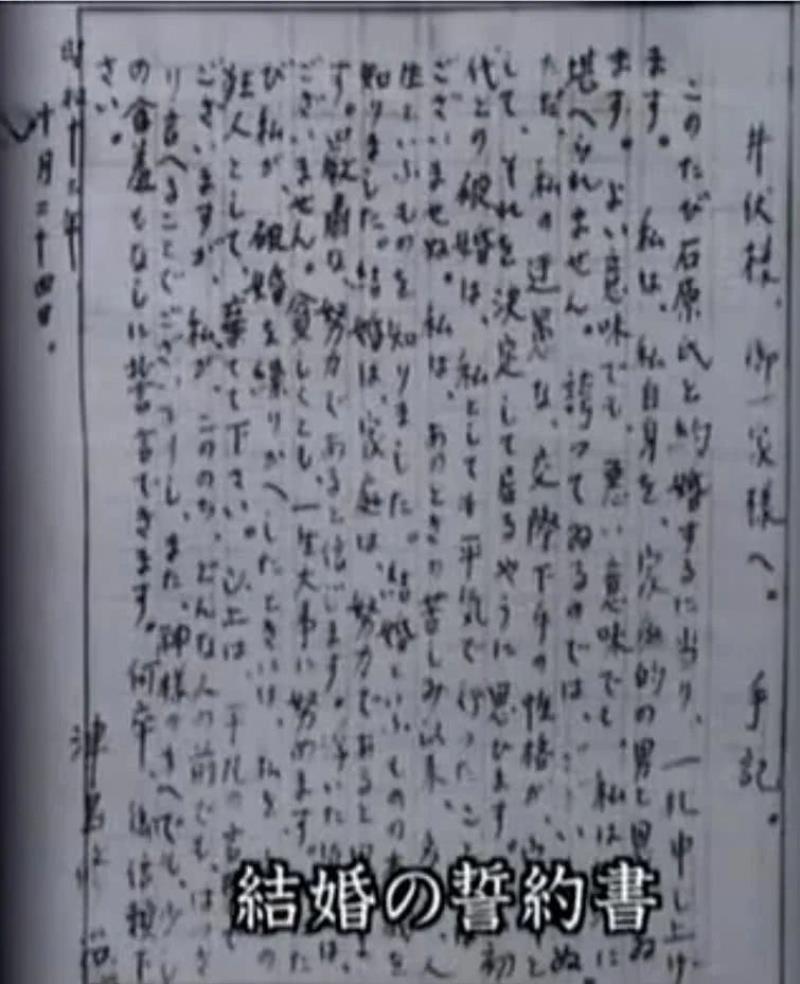 井伏様、御一家様へ。 手記。
このたび石原氏と約婚するに当り、一札申し上げ
ます。私は、私自身を、家庭的の男と思 ゐ
ます。よい意味でも、悪い意味でも、私は に
堪へられません。誇つてゐるのでは、 ぬ。
ただ、私の迂愚な、交際下手の性格が、 と
して、それを決定して居るやうに思ひます。 初
代との破婚は、私としても平気で行つたこと
ございませぬ。私は、あのときの苦しみ以来、 人
生といふものを知りました。結婚といふものの を
知りました。結婚は、家庭は、努力であると思
す。厳粛な、努力であると信じます。浮いた は、
ございません。貧しくとも、一生大事に努めます。 た
び私が、破婚を繰りかへしたときには、私を、 の
狂人として、棄てて下さい。以上は、平凡の言 で
ございますが、私が、こののち、どんな人の前でも、はつき
り言へることでございますし、また、神様のまへでも、少し
の含羞もなしに誓言できます。何卒、御信頼下
さい。
昭和十三年
十月二十四日。
津島修治
結婚の誓約書